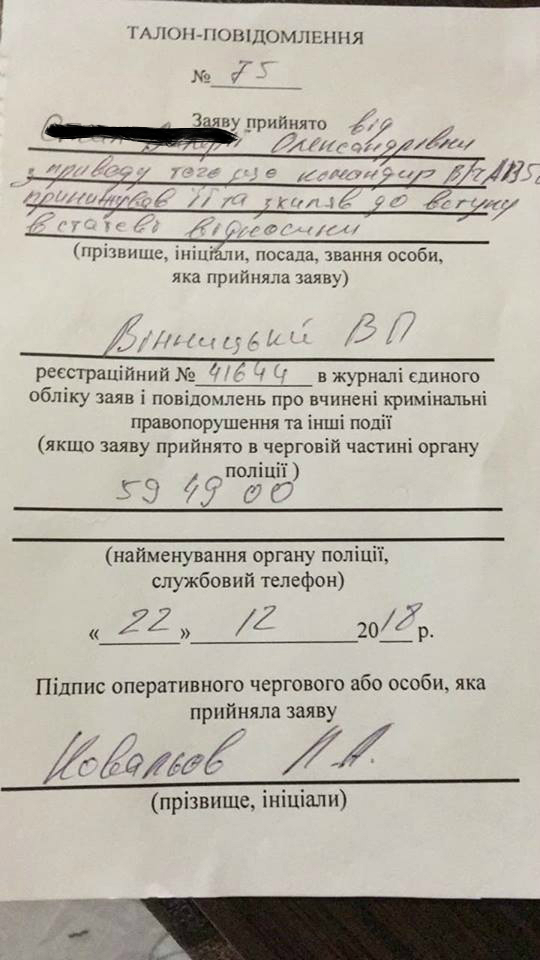 ТАЛОН-ПОВІДОМЛЕННЯ
№ 75
Заяву прийнято від
Олександрівни
з приводу того що командир В/Ч
принижував її та схиляв до вступу
в статеві відносини
(прізвище, ініціали, посада, звання особи,
яка прийняла заяву)
Вінницькій ВП
реєстраційний № 41644 в журналі єдиного
обліку заяв і повідомлень про вчинені кримінальні
правопорушення та інші події
(якщо заяву прийнято в черговій частині органу
поліції )
59 49 00
(найменування органу поліції,
службовий телефон)
« 22 » 12 2018 р.
Підпис оперативного чергового або особи, яка
прийняла заяву
Ковальов П.А.
(прізвище, ініціали)